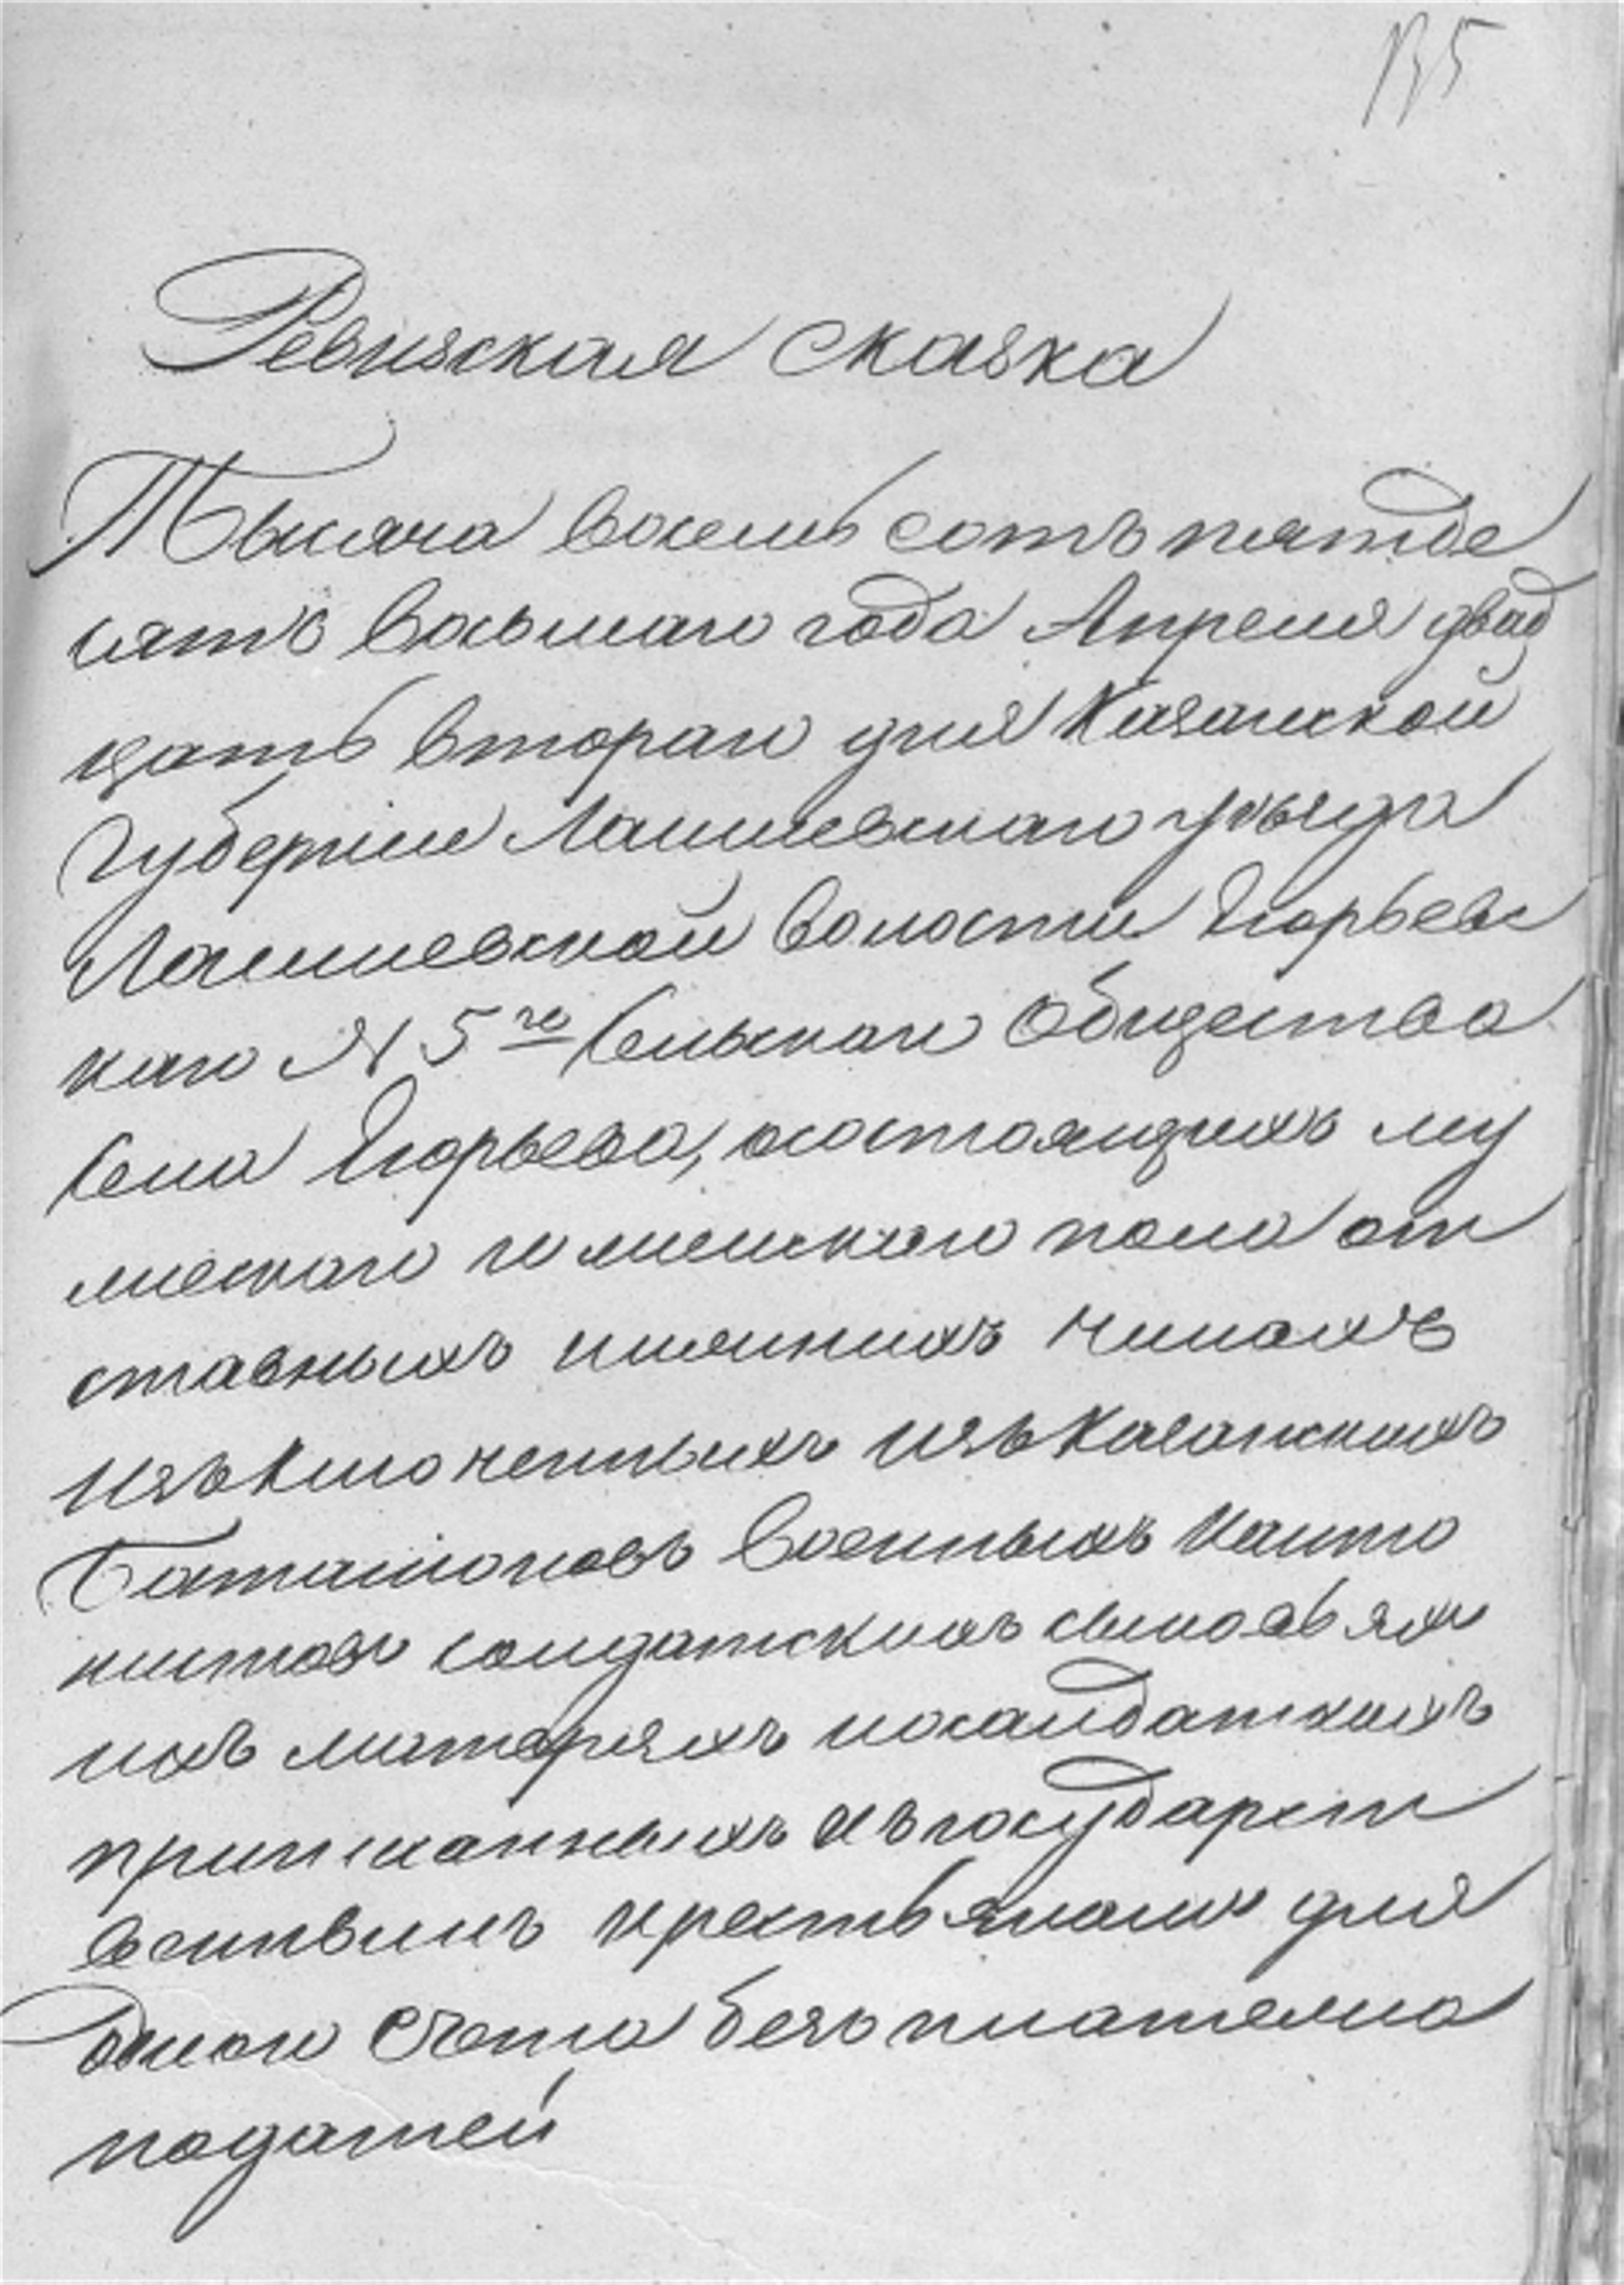 135
Ревизская сказка
Тысяча восемь сотъ пятьде
сятъ восьмаго года Апреля двад
цать втораго дня Казанской
Губерніи Лаишевскаго уѣзда
Лаишевской волости Егорьевс
каго № 5го Сельскаго Общества
Села Егорьева, состоящихъ му
жескаго и женскаго пола от
ставныхъ нижнихъ чинахъ
изъключенныхъ изъ Казанскихъ
Баталіоновъ военныхъ канто
нистовъ солдатскихъ сыновьях
ихъ матеряхъ и солдаткахъ
приписанныхъ къ государст
веннымъ крестьянамъ для
одного счета безъ платежа
податей